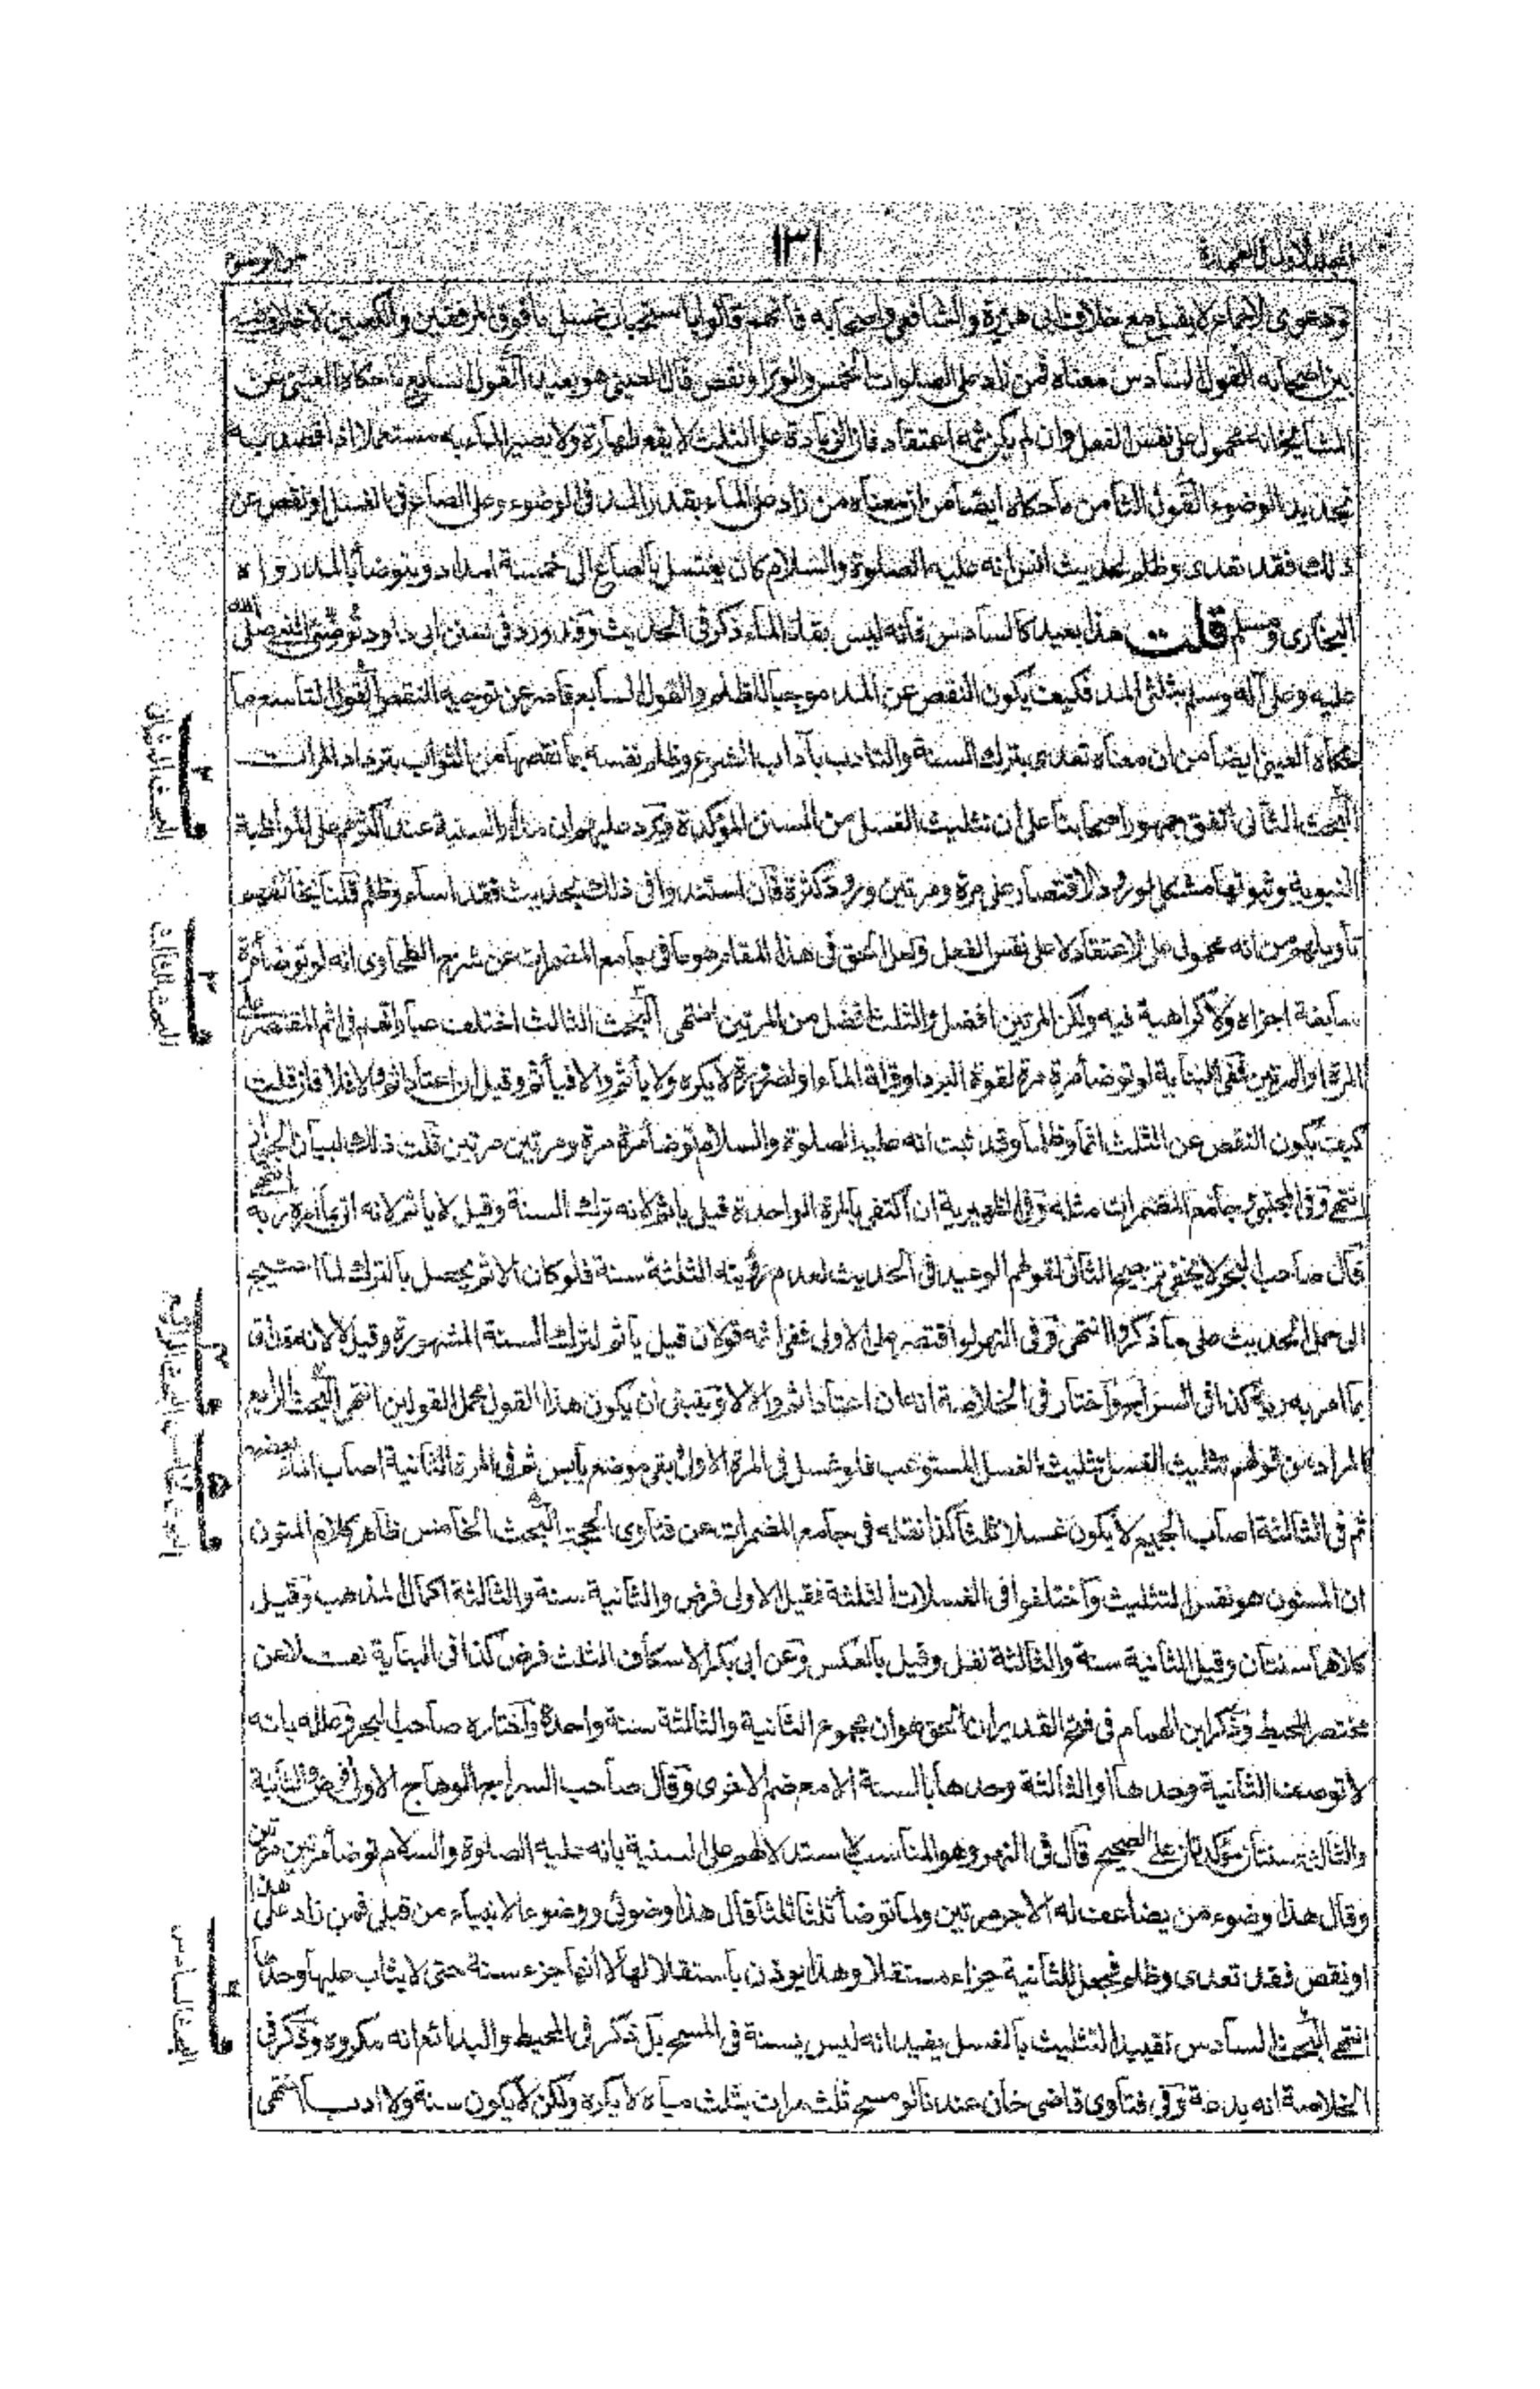 ١٣١
ودعوى الاجماع لا يصح مع خلاف ابى هريرة والشافعى واصحابه فانهم قالوا باستحباب غسل ما فوق المرفقين والكعبين لا خلاف فيه
بين اصحابه القول السادس معناه فمن زاد على الصلوات الخمس والوتر او نقص قال العينى هو بعيد القول السابع ما حكاه العينى عن
المشايخ انه محمول على نفس الفعل وان لم يكن ثمه اعتقاد فان الزيادة على الثلث لا يقع طهارة ولا يصير الماء به مستعملا الا اذا قصد به
تجديد الوضوء القول الثامن ما حكاه ايضا من ان معناه من زاد على الماء بقدر المد فى الوضوء وعلى الصاع فى الغسل او نقص عن
ذلك فقد تعدى وظلم لحديث انس انه عليه الصلوة والسلام كان يغتسل بالصاع الى خمسة امداد ويتوضأ بالمد رواه
البخارى ومسلم قلت هذا بعيد كالسادس فانه ليس بقدر الماء ذكر فى الحديث وقد ورد فى سنن ابى داود توضئ النبى صلى الله
عليه وعلى آله وسلم بثلثى المد فكيف يكون النقص عن المد موجبا للظلم والقول السابع قاصر عن توجيه النقص القول التاسع ما
حكاه العينى ايضا من ان معناه تعدى بترك السنة والتادب بآداب الشرع وظلم نفسه بما نقصها من الثواب بترداد المرات
البحث الثانى اتفق جمهور اصحابنا على ان تثليث الغسل من السنن المؤكدة ويرد عليهم ان مدار السنية عند اكثرهم على المواظبة
النبوية وثبوتها مشكل لورود الاقتصار على مرة ومرتين ورود كثرة فان استندوا فى ذلك بحديث فقد اساء وظلم قلنا يخالفه
تأويلهم من انه محمول على الاعتقاد لا على نفس الفعل ولعل الحق فى هذا المقام هو ما فى جامع المضمرات عن شرح الطحاوى انه لو توضأ مرة
سابغة اجزاه ولا كراهية فيه ولكن المرتين افضل والثلث افضل من المرتين انتهى البحث الثالث اختلف عباراتهم فى اثم المقتصر على
المرة او المرتين ففى البناية لو توضأ مرة مرة لقوة البرد او قلة الماء او لضرورة لا يكره ولا يأثم والا فيأثم وقيل ان اعتاد اثم والا فلا فان قلت
كيف يكون النقص عن الثلث اثما وظلما وقد ثبت انه عليه الصلوة والسلام توضأ مرة مرة ومرتين مرتين قلت ذلك لبيان الجواز
انتهى وفى المجتبى وجامع المضمرات مثله وفى الظهيرية ان اكتفى بالمرة الواحدة قيل ياثم لانه ترك السنة وقيل لا ياثم لانه اتى بما امره ربه انتهى
قال صاحب البحر لا يخفى ترجيح الثانى لقولهم الوعيد فى الحديث لعدم رؤيته الثلثة سنة فلو كان الاثم يحصل بالترك لما احتيج
الى حمل الحديث على ما ذكروا انتهى وفى النهر لو اقتصر على الاولى ففى اثمه قولان قيل يأثم لترك السنة المشهورة وقيل لا لانه قد اتى
بما امر به ربه كذا فى السراج واختار فى الخلاصة انه ان اعتاد اثم والا لا وينبغى ان يكون هذا القول محمل القولين انتهى البحث الرابع
المراد من قولهم تثليث الغسل تثليث الغسل المستوعب فلو غسل فى المرة الاولى وبقى موضع يابس ثم فى المرة الثانية اصاب الماء بعضه
ثم فى الثالثة اصاب الجميع لا يكون غسلا ثلثا كذا نقله فى جامع المضمرات عن فتاوى الحجة البحث الخامس ظاهر كلام المتون
ان المسنون هو نفس التثليث واختلفوا فى الغسلات الثلثة فقيل الاولى فرض والثانية سنة والثالثة اكمال المذهب وقيل
كلاهما سنتان وقيل الثانية سنة والثالثة نفل وقيل بالعكس وعن ابى بكر الاسكاف الثلث فرض كذا فى البناية نقلا عن
مختصر المحيط وذكر ابن الهمام فى فتح القدير ان الحق هو ان مجموع الثانية والثالثة سنة واحدة واختاره صاحب البحر وعلله بانه
لا توصف الثانية وحدها او الثالثة وحدها بالسنة الا مع ضم الاخرى وقال صاحب السراج الوهاج الاولى فرض والثانية
والثالثة سنتان مؤكدتان على الصحيح قال فى النهر وهو المناسب لاستدلالهم على السنية بانه عليه الصلوة والسلام توضأ مرتين مرتين
وقال هذا وضوء من يضاعف له الاجر مرتين ولما توضأ ثلثا ثلثا قال هذا وضوئى ووضوء الانبياء من قبلى فمن زاد على هذا
او نقص فقد تعدى وظلم فجعل للثانية جزاء مستقلا وهذا يوذن باستقلالها لا انها جزء سنة حتى لا يثاب عليها وحدها
انتهى البحث السادس تقييد التثليث بالغسل يفيد انه ليس بسنة فى المسح بل ذكر فى المحيط والبدائع انه مكروه وذكر فى
الخلاصة انه بدعة وفى فتاوى قاضى خان عندنا لو مسح ثلث مرات بثلث مياه لا يكره ولكن لا يكون سنة ولا ادب انتهى
البحث الثانى
البحث الثالث
البحث الرابع
البحث الخامس
البحث السادس